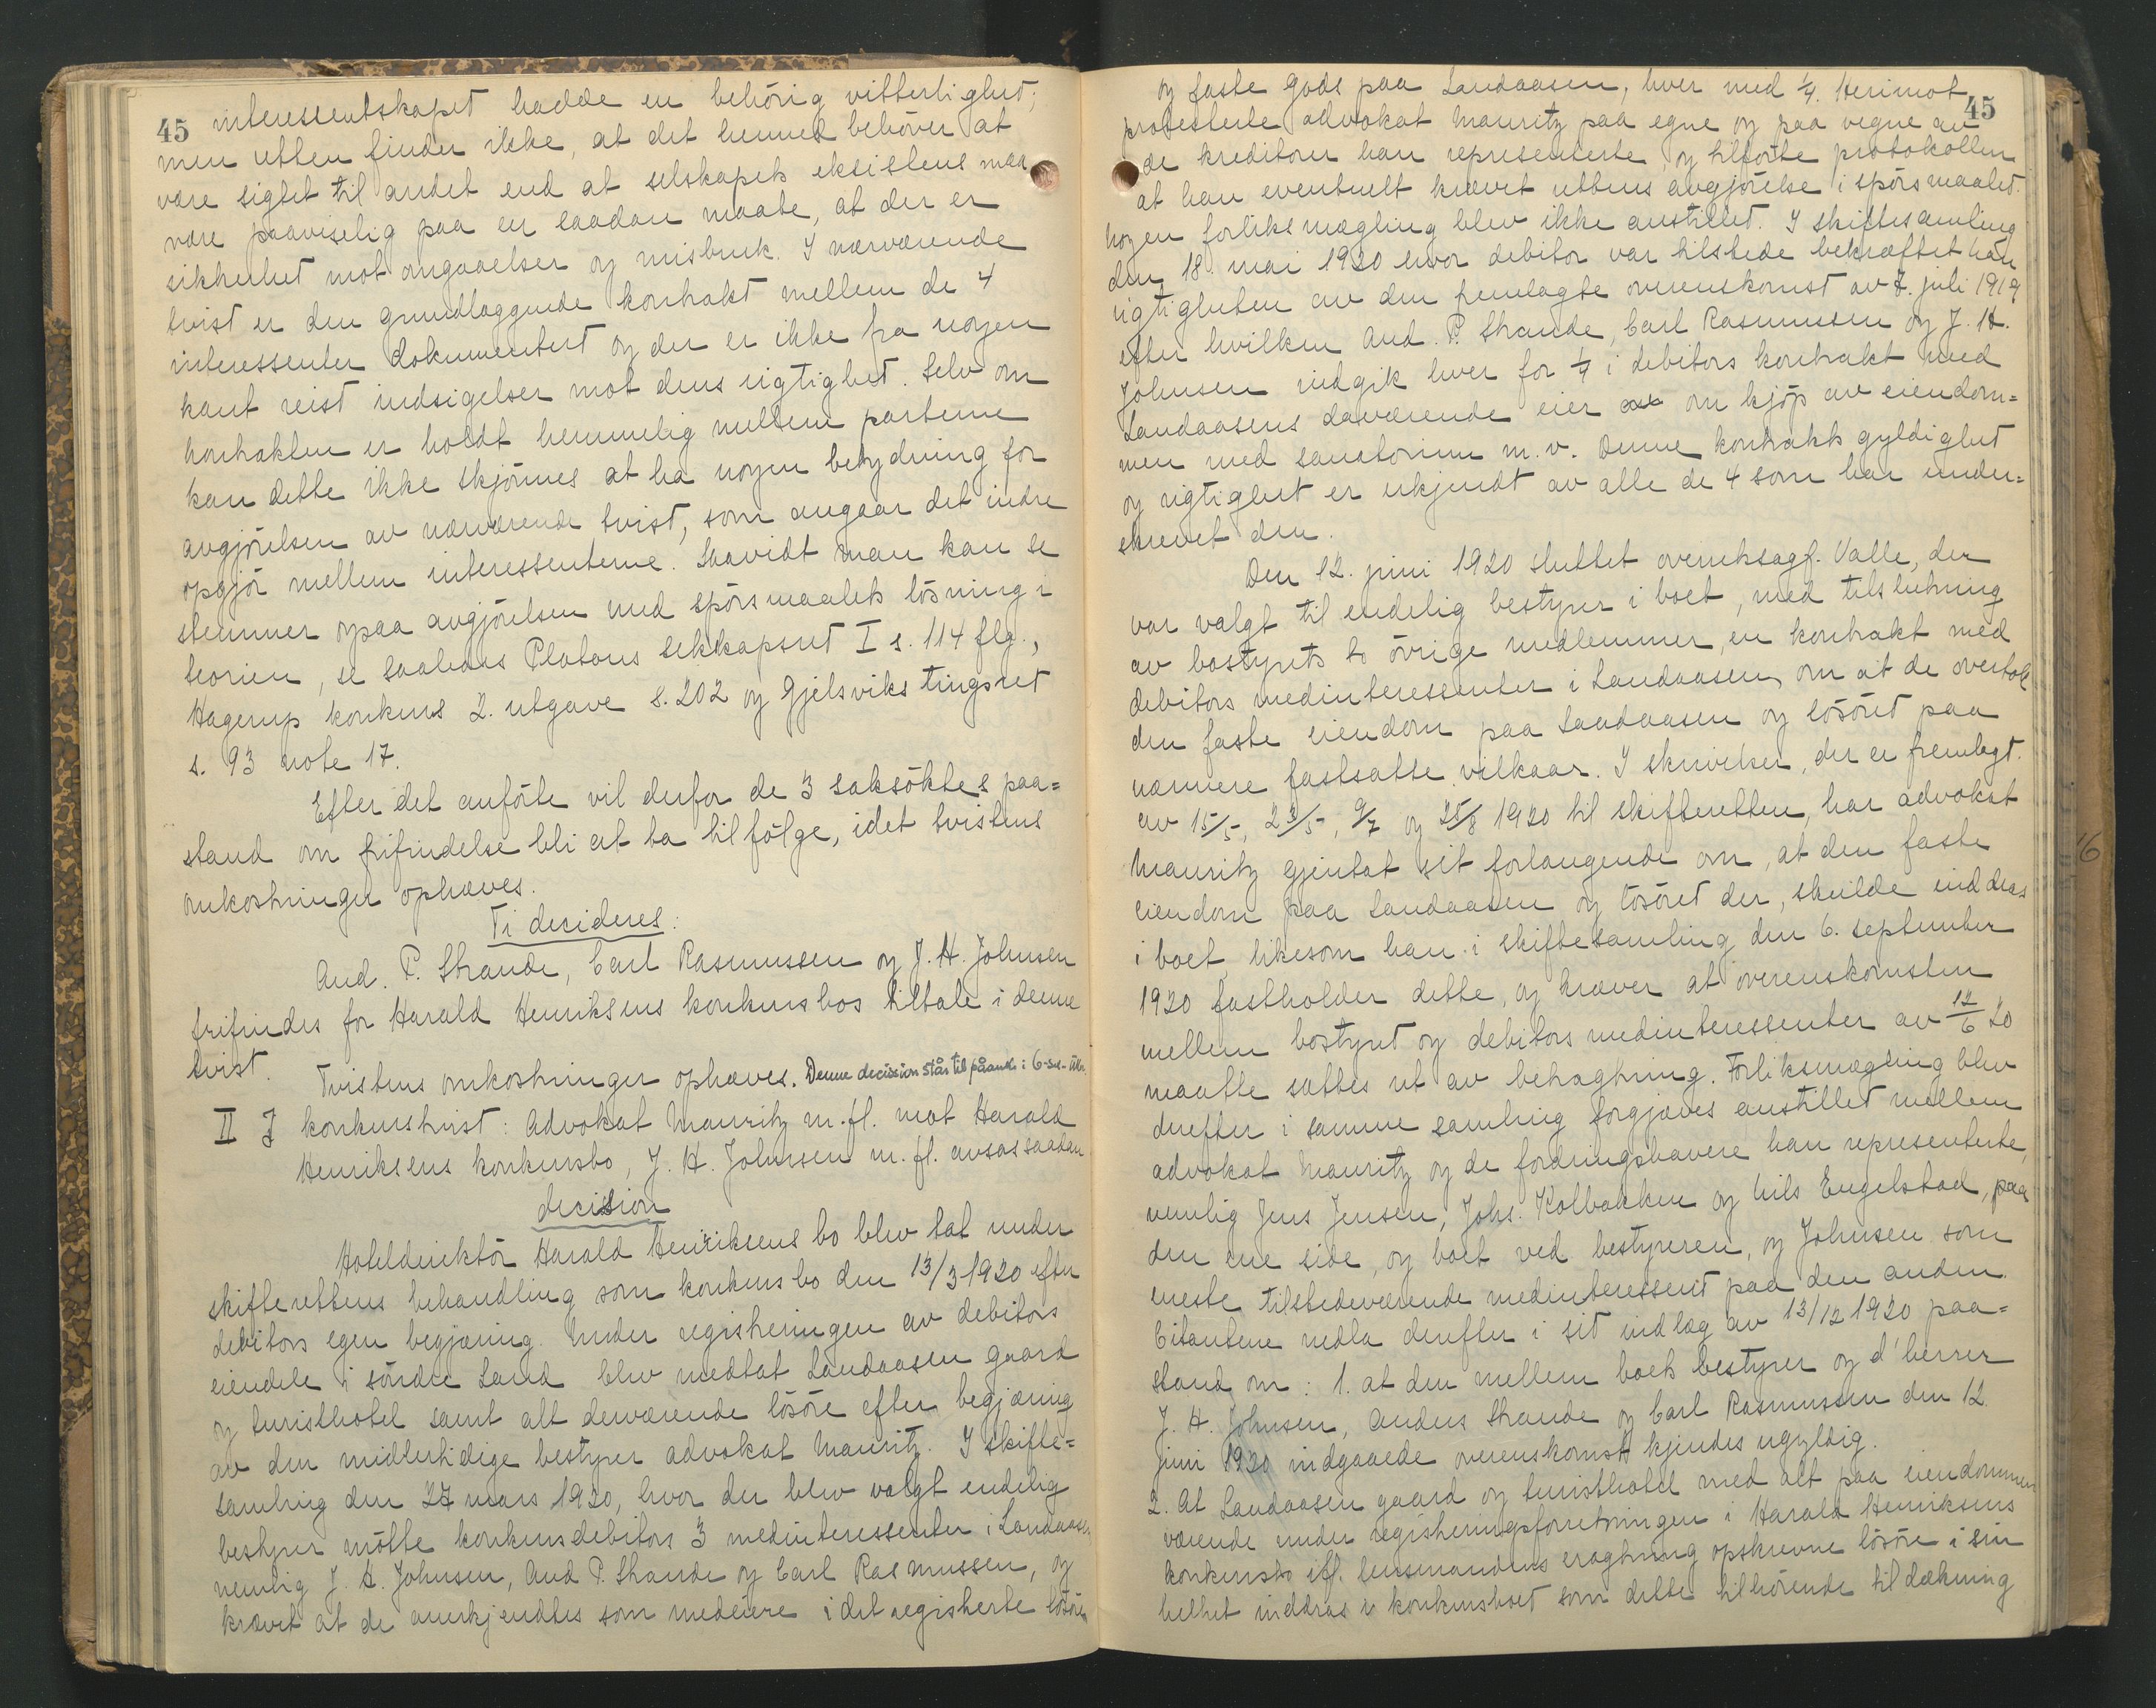 45 interessentskapet hadde en behörig vitterlighet;
men retten finder ikke, at det hermed behöver at
være sigtet til andet end at selskapets eksistens maa
være paaviselig paa en saadan maate, at der er
sikkerhet mot omgaaelser og misbruk. I nærværende
tvist er den grundlæggende kontrakt mellem de 4
interessenter dokumentert og der er ikke fra nogen
kant reist indsigelser mot dens rigtighet. Selv om
kontrakten er holdt hemmelig mellem parterne
kan dette ikke skjönnes at ha nogen betydning for
avgjörelsen av nærværende tvist, som angaar det indre
opgjör mellem interessenterne. Saavidt man kan se
stemmer ogsaa avgjörelsen med spörsmaalets lösning i
teorien, se saaledes Platous selskapsret I s. 114 flg.,
Hagerup konkurs 2. utgave s. 202 og Gjelsviks tingsret
s. 93 note 17.
Efter det anförte vil derfor de 3 saksöktes paa=
stand om frifindelse bli at ta tilfölge, idet tvistens
omkostninger ophæves.
Ti decideres:
And. P. Strande, Carl Rasmussen og J. H. Johnsen
frifindes for Harald Henriksens konkursbos tiltale i denne
tvist.
Tvistens omkostninger ophæves. Denne decission står til påanke i 6-seks-uker.
II I konkurstvist: Advokat Mauritz m.fl. mot Harald
Henriksens konkursbo, J. H. Johnsen m.fl. avsas saadan
decision
Hoteldirektör Harald Henriksens bo blev tat under
skifterettens behandling som konkursbo den 13/3 1920 efter
debitors egen begjæring. Under registreringen av debitors
eiendele i söndre Land blev medtat Landaasen gaard
og turisthotel samt alt derværende lösöre efter begjæring
av den midlertidige bestyrer advokat Mauritz. I skifte=
samling den 27 mars 1920, hvor der blev valgt endelig
bestyrer mötte konkursdebitors 3 medinteressenter i Landaasen,
nemlig J. H. Johnsen, And P. Strande og Carl Rasmussen, og
krævet at de anerkjendtes som medeiere i det registrerte lösöre
og faste gods paa Landaasen, hver med 1/4. Herimot 45
protesterte advokat Mauritz paa egne og paa vegne av
de kreditorer han representerte, og tilförte protokollen
at han eventuelt krævet rettens avgjörelse i spörsmaalet.
Nogen forliksmægling blev ikke anstillet. I skiftesamling
den 18. mai 1920 hvor debitor var tilstede bekræftet han
rigtigheten av den fremlagte overenskomst av 7. juli 1919
efter hvilken And. P. Strande, Carl Rasmussen og J. H.
Johnsen indgik hver for 1/4 i debitors kontrakt med
Landaasens daværende eier om kjöp av eiendom=
men med sanatorium m.v. Denne kontrakts gyldighet
og rigtighet er erkjendt av alle de 4 som har under=
skrevet den.
Den 12. juni 1920 sluttet overretssagf. Valle, der
var valgt til endelig bestyrer i boet, med tilslutning
av bostyrets to övrige medlemmer, en kontrakt med
debitors medinteressenter i Landaasen, om at de overtok
den faste eiendom paa Landaasen og lösöret paa
nærmere fastsatte vilkaar. I skrivelser, der er fremlagt.
av 15/5, 23/5, 9/7 og 25/8 1920 til skifteretten, har advokat
Mauritz gjentat sit forlangende om, at den faste
eiendom paa Landaasen og lösöret der, skulde inddras
i boet, likesom han i skiftesamling den 6. september
1920 fastholder dette, og kræver at overenskomsten
mellem bostyret og debitors medinteressenter av 12/6 20
maatte sættes ut av betragtning. Forliksmægling blev
derefter i samme samling forgjæves anstillet mellem
advokat Mauritz og de fordringshavere han representerte,
nemlig Jens Jensen, Johs. Kolbakken og Nils Engelstad, paa
den ene side, og boet ved bestyreren, og Johnsen som
eneste tilstedeværende medinteressent paa den anden.
Citantene nedla derefter i sit indlæg av 13/12 1920 paa=
stand om: 1. at den mellem boets bestyrer og d'herrer
J. H. Johnsen, Anders Strande og Carl Rasmussen den 12.
juni 1920 indgaaede overenskomst kjendes ugyldig.
2. At Landaasen gaard og turisthotel med alt paa eiendommen
værende under registreringsforretningen i Harald Henriksens
konkursbo ifl. lensmandens eragtning opskrevne lösöre i sin
helhet inddras i konkursboet som dette tilhörende til dækning